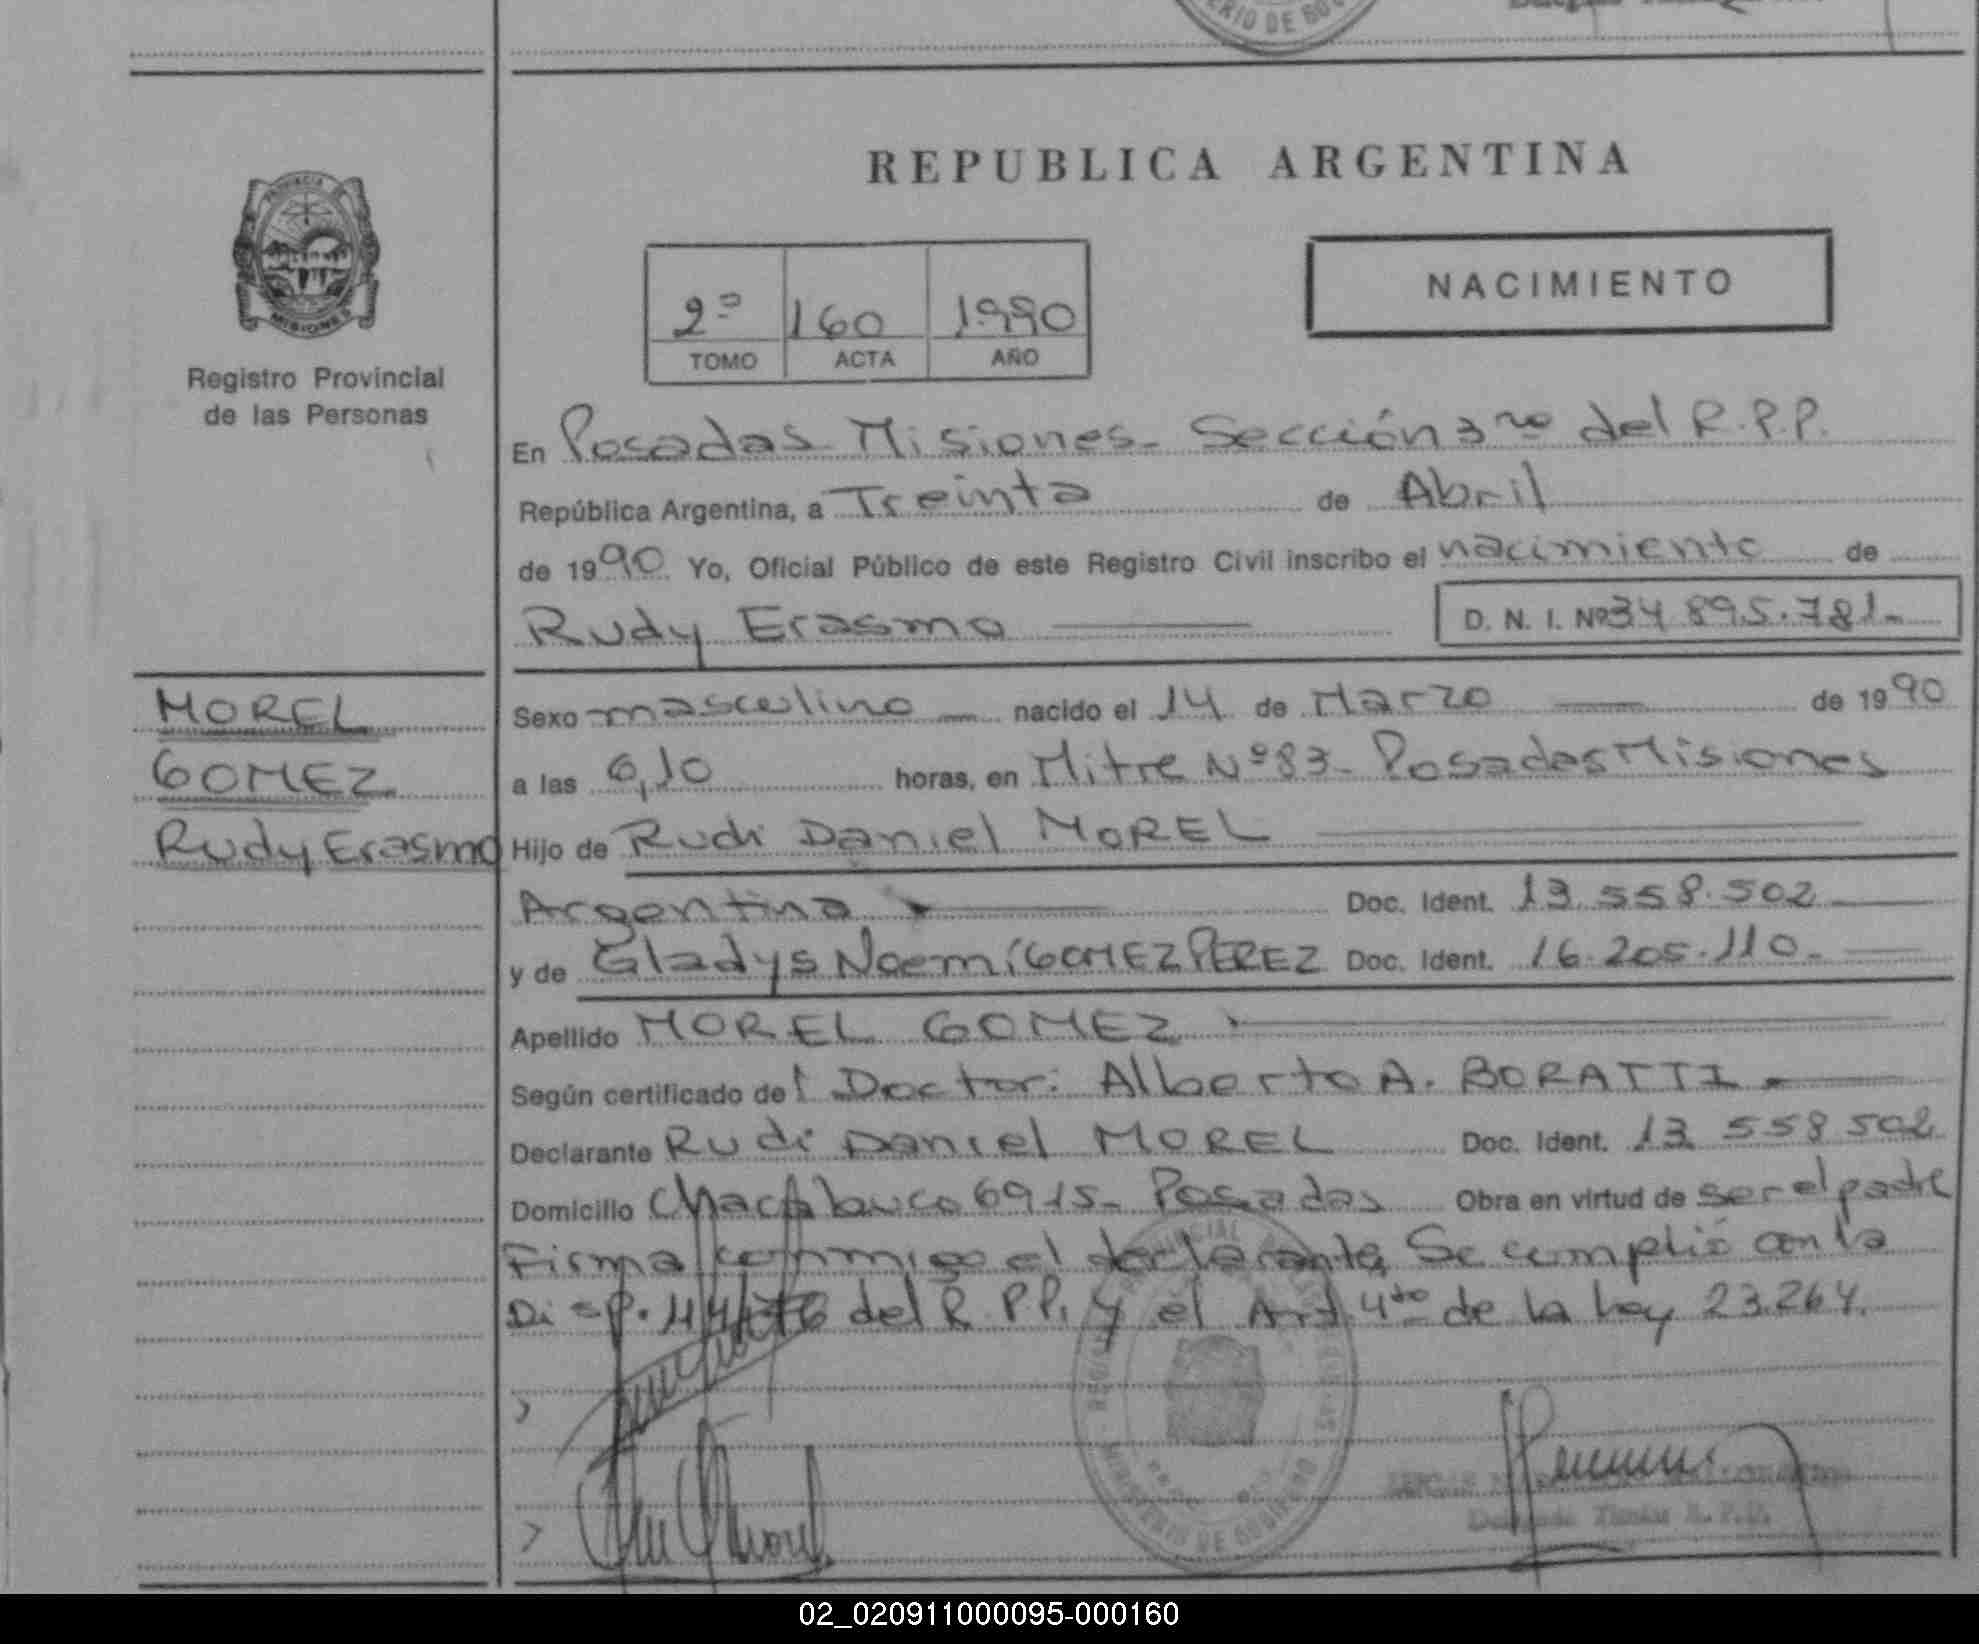 MINISTERIO DE GOB
REPUBLICA ARGENTINA
PROVINCIA DE
MISIONES
Registro Provincial
de las Personas
2º 160 1990
TOMO ACTA AÑO
NACIMIENTO
En Posadas Misiones- Sección 3ra del R.P.P.
República Argentina, a Treinta de Abril
de 1990 Yo, Oficial Público de este Registro Civil inscribo el nacimiento de
Rudy Erasmo
D. N. I. Nº 34 895.781-
MOREL
GOMEZ
Rudy Erasmo
Sexo masculino nacido el 14 de Marzo de 1990
a las 6,10 horas, en Mitre Nº 83- Posadas Misiones
Hijo de Rudi Daniel MOREL
Argentina Doc. Ident. 13.558.502
y de Gladys Noemí GOMEZ PEREZ Doc. Ident. 16.205.110-
Apellido MOREL GOMEZ
Según certificado del Doctor: Alberto A. BORATTI
Declarante Rudi Daniel MOREL Doc. Ident. 13 558 502
Domicilio Chacabuco 6915- Posadas Obra en virtud de ser el padre
Firma conmigo el declarante, Se cumplió con la
Disp. del R.P.P. y el Art 4to de la Ley 23.264.
MINISTERIO DE GOBIERNO
02_020911000095-000160